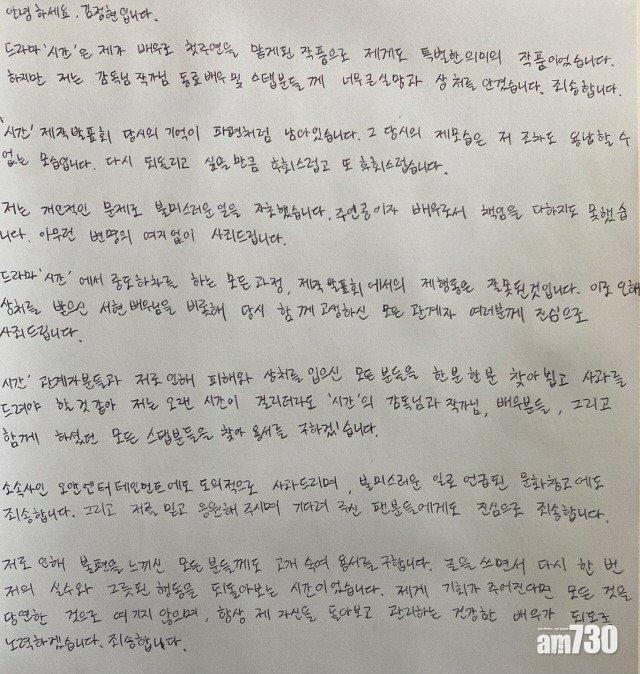 안녕하세요. 김정현입니다.
드라마 '시간'은 제가 배우로 첫주연을 맡게된 작품으로 제게도 특별한 의미의 작품이었습니다.
하지만 저는 감독님 작가님 동료배우 및 스탭분들께 너무 큰 실망과 상처를 안겼습니다. 죄송합니다.
'시간' 제작발표회 당시의 기억이 파편처럼 남아있습니다. 그 당시의 제모습은 저 조차도 용납할 수
없는 모습입니다. 다시 되돌리고 싶을 만큼 후회스럽고 또 후회스럽습니다.
저는 개인적인 문제로 불미스러운 일을 자초했습니다. 주연공이자 배우로서 책임을 다하지도 못했습
니다. 아무런 변명의 여지 없이 사죄드립니다.
드라마 '시간'에서 중도하차를 하는 모든 과정, 제작발표회에서의 제행동은 잘못된것입니다. 이로 인해
상처를 받으신 서현 배우님을 비롯해 당시 함께 고생하신 모든 관계자 여러분께 진심으로
사죄드립니다.
시간' 관계자분들과 저로 인해 피해와 상처를 입으신 모든 분들을 한분 한분 찾아 뵙고 사과를
드려야 할것 같아 저는 오랜 시간이 걸리더라도 '시간'의 감독님과 작가님, 배우분들, 그리고
함께 하셨던 모든 스탭분들을 찾아 용서를 구하겠습니다.
소속사인 오앤엔터테인먼트에도 도의적으로 사과드리며, 불미스러운 일로 언급된 문화창고에도
죄송합니다. 그리고 저를 믿고 응원해 주시며 기다려 주신 팬분들에게도 진심으로 죄송합니다.
저로 인해 불편을 느끼신 모든 분들께도 고개 숙여 용서를 구합니다. 글을 쓰면서 다시 한 번
저의 실수와 그릇된 행동을 되돌아보는 시간이었습니다. 제게 기회가 주어진다면 모든 것을
당연한 것으로 여기지 않으며, 항상 제 자신을 돌아보고 관리하는 건강한 배우가 되도록
노력하겠습니다. 죄송합니다.
am730